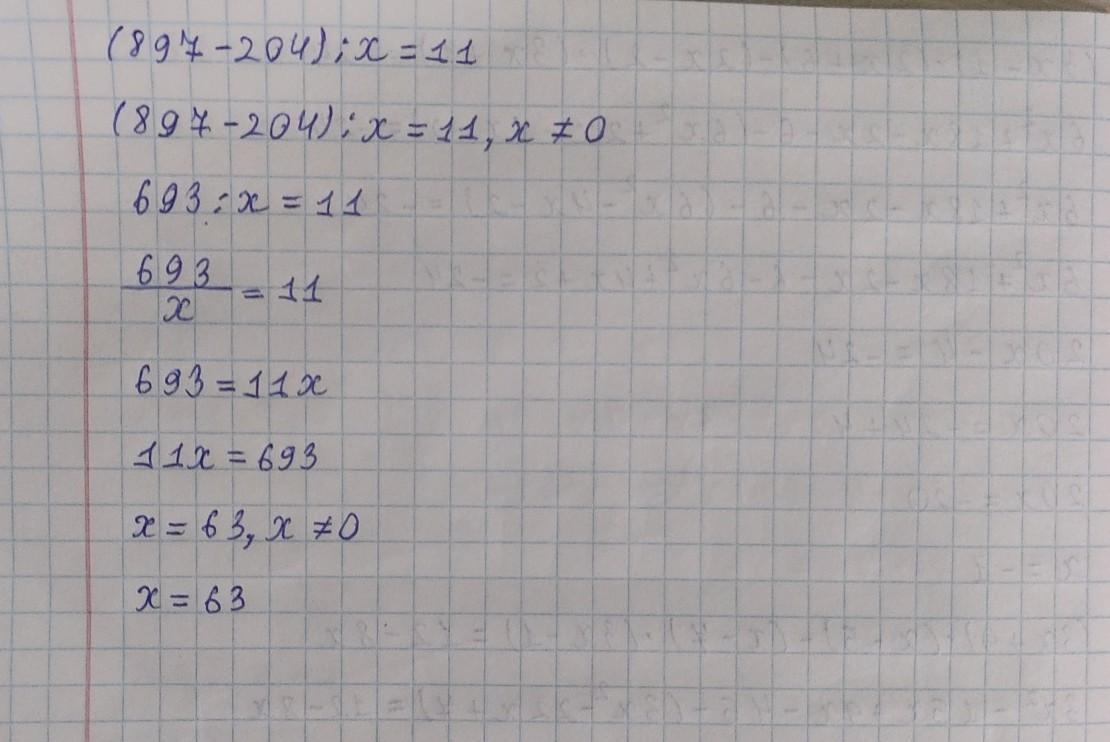 (897-204):x=11
(897-204):x=11, x≠0
693:x=11
693/x=11
693=11x
11x=693
x=63, x≠0
x=63